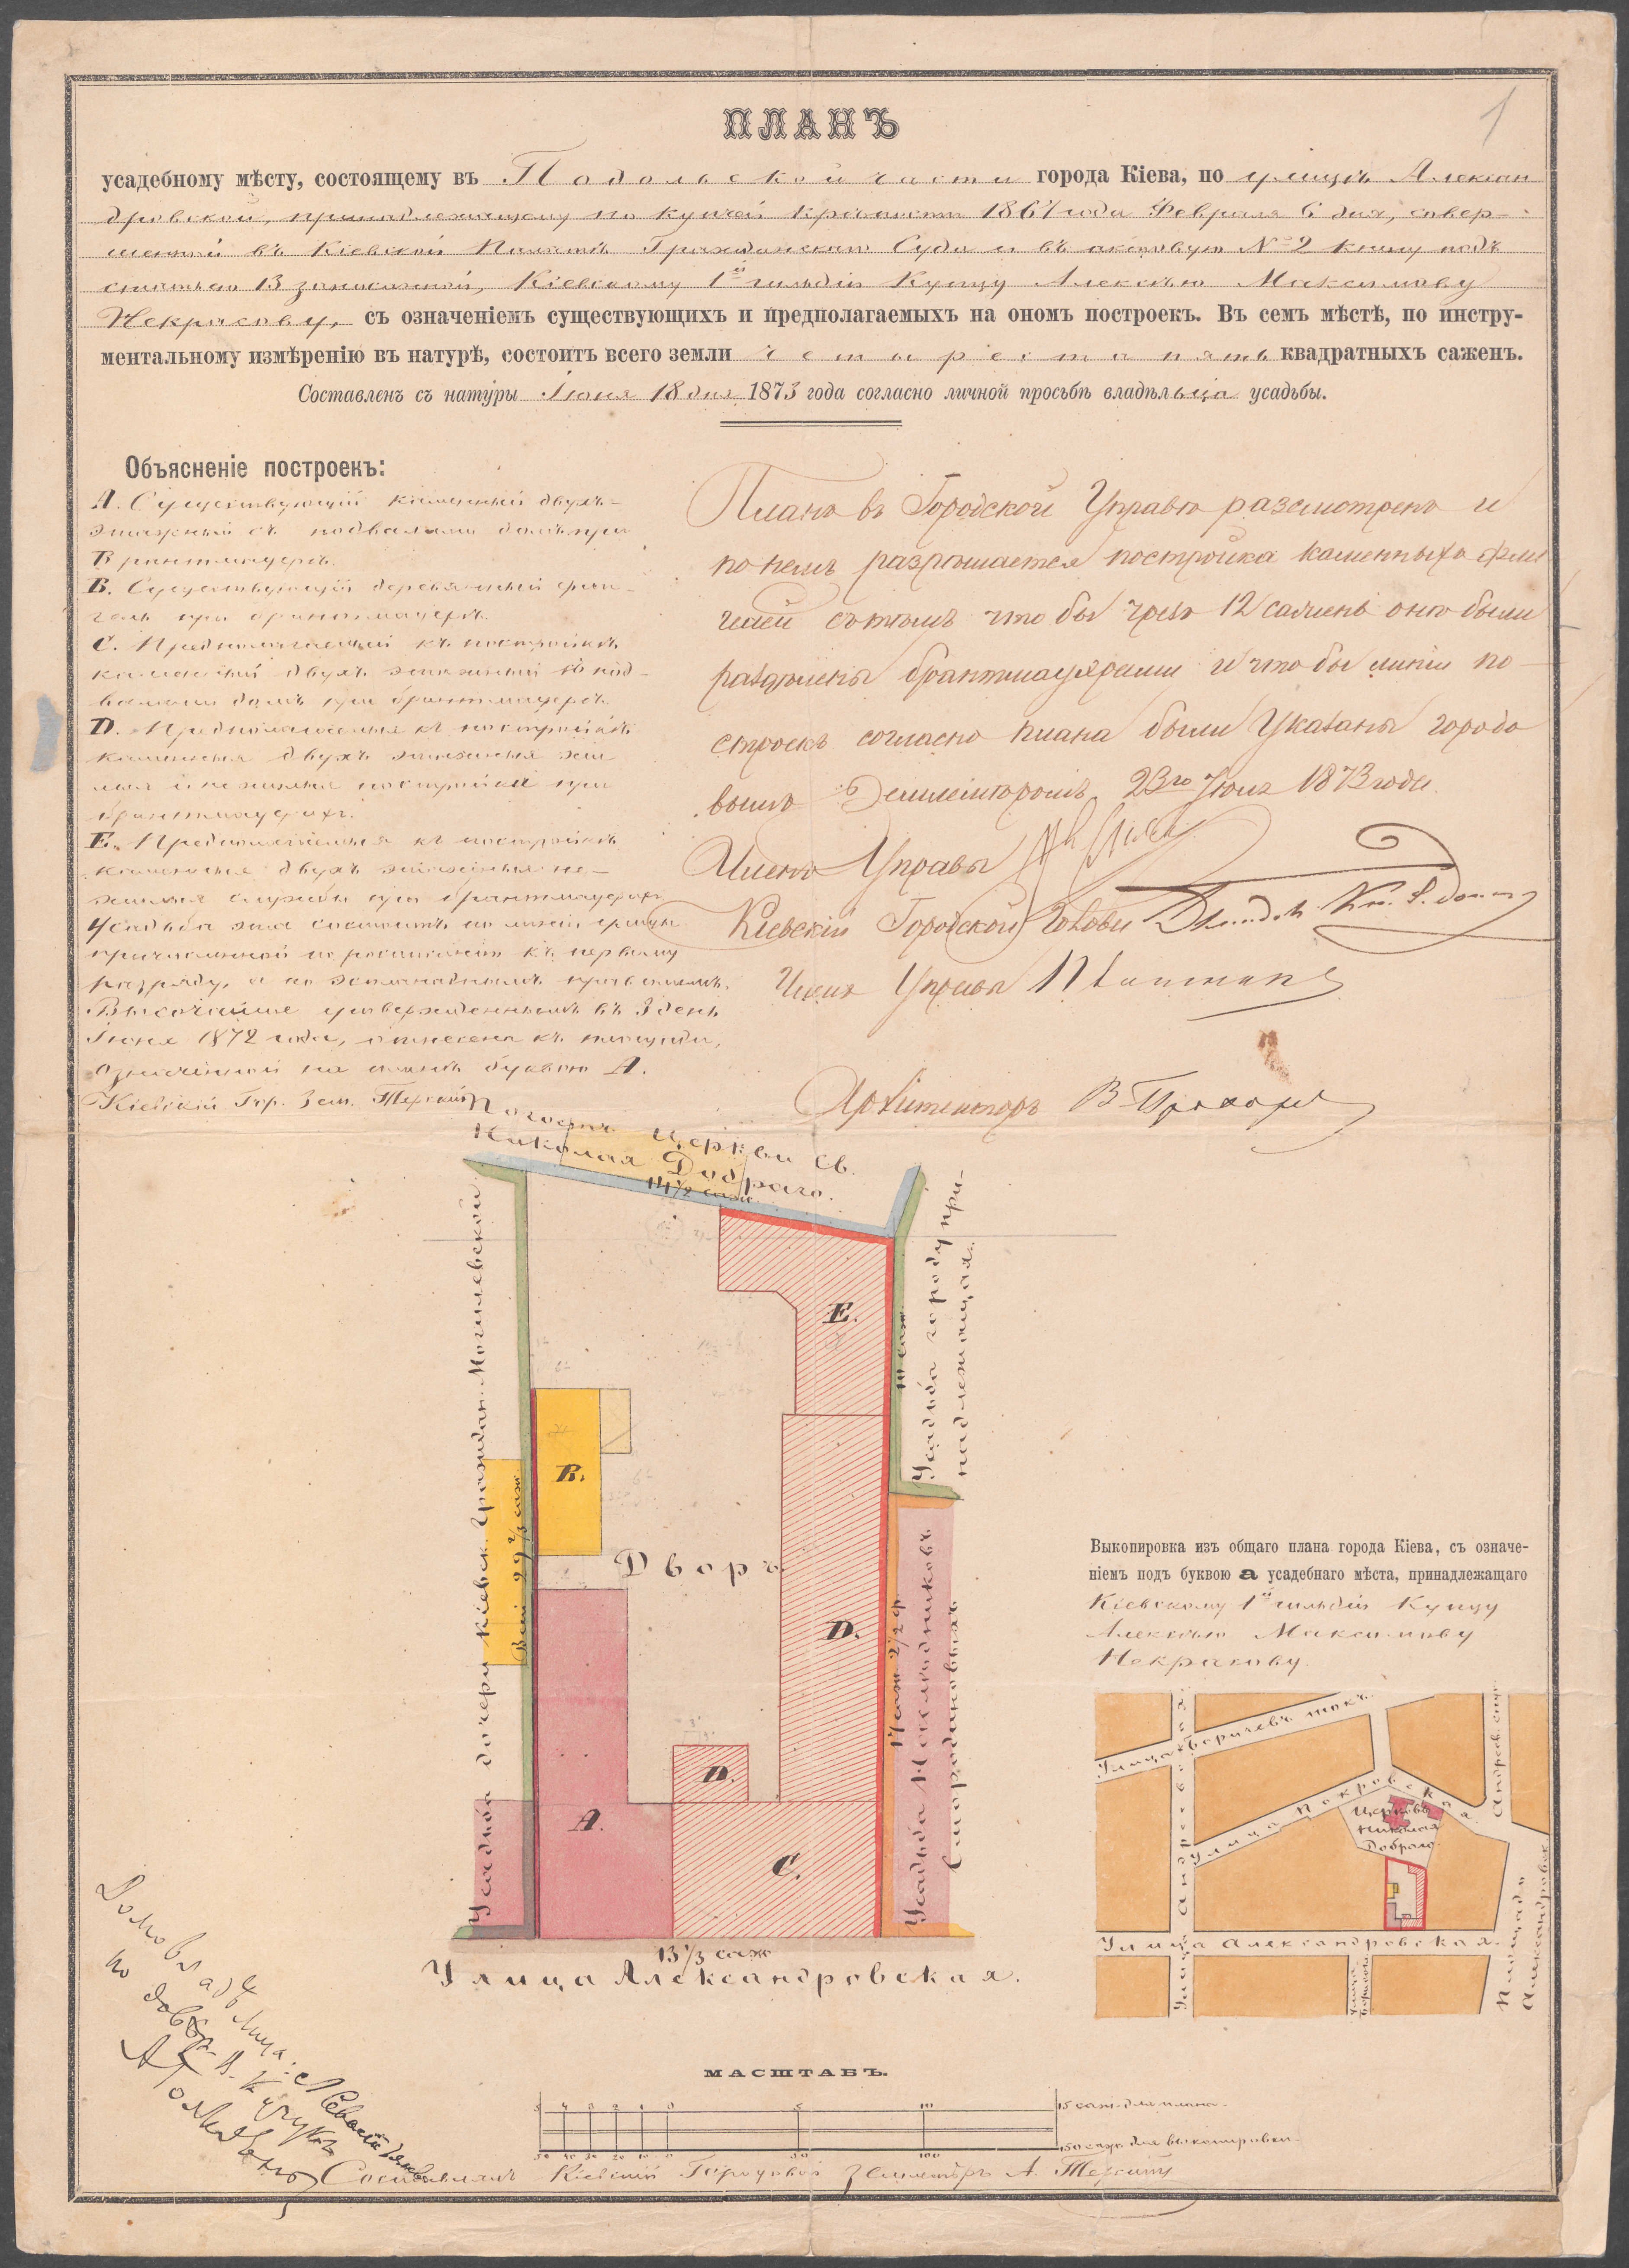 1
ПЛАНЪ
усадебному мѣсту, состоящему въ Подольской части города Кіева, по улицѣ Алексан
дровской, принадлежащему по купчей крѣпости 1861 года Февраля 6 дня, совер-
шенной въ Кіевской Палатѣ Гражданскаго Суда и въ актовую № 2 книгу подъ
статьею 13 записанной, Кіевскому 1й гильдіи Купцу Алексѣю Максимову
Некрасову, съ означеніемъ существующихъ и предполагаемыхъ на ономъ построекъ. Въ семъ мѣстѣ, по инстру-
ментальному измѣренію въ натурѣ, состоитъ всего земли четыреста пять квадратныхъ саженъ.
Составленъ съ натуры Іюня 18 дня 1873 года согласно личной просьбѣ владѣльца усадьбы.
Объясненіе построекъ:
А. Существующій каменный двухъ-
этажный съ подвалами домъ при
брантмауерѣ.
В. Существующій деревянный фли-
гель при брантмауерѣ.
С. Предполагаемый къ постройкѣ
каменный двухъ этажный съ под-
валами домъ при брантмауерѣ.
D. Предполагаемыя къ постройкѣ
каменныя двухъ этажныя жи
лыя и нежилыя постройки при
брантмауерахъ.
Е. Предполагаемыя къ постройкѣ
каменныя двухъ этажныя не-
жилыя службы при брантмауерахъ
Усадьба эта состоитъ по линіи улицы
причисленной по росписанію къ первому
разряду, а по эспланаднымъ правиламъ,
Высочайше утвержденнымъ въ 3 день
Іюня 1872 года, отнесена къ площади,
означенной на планѣ буквою А.
Кіевскій Гор. Зем. Терскій
Планъ въ Городской Управѣ разсмотренъ и
по немъ разрѣшается постройка каменныхъ фли
гелей съ тѣмъ что бы чрезъ 12 сажень оне были
раздѣлены брантмауерами и что бы линіи по-
строекъ согласно плана были Указаны городо
вымъ Землемѣромъ. 23го Іюня 1873 года.
Членъ Управы
Кіевскій Городской Голова
Членъ Управы
Архитекторъ В
Погостъ Церкви Св.
Николая Добраго.
14 1/2 саж.
Усадьба дочери Кіевск. Граждан. Могилевской
Всей 29 2/3 саж.
Усадьба городу при-
надлежащая.
Усадьба Наслѣдниковъ
Смородиновыхъ
E.
В.
Дворъ
D.
D.
А.
С.
13 1/3 саж
Улица Александровская.
Выкопировка изъ общаго плана города Кіева, съ означе-
ніемъ подъ буквою а усадебнаго мѣста, принадлежащаго
Кіевскому 1й гильдіи Купцу
Алексѣю Максимову
Некрасову.
Улица Боричевъ токъ.
Улица Андреевская
Улица Покровская
Андреев. спус
Церковь
Николая
Добраго.
Улица Александровская.
Площадь
Александровск
Домовладѣлица:
по довѣр.
МАСШТАБЪ.
5 4 3 2 1 0 5 10 15 саж. для плана.
50 40 30 20 10 0 50 100 150 саж. для выкопировки.
Составлялъ Кіевскій Городовой Землемѣръ А. Терскій